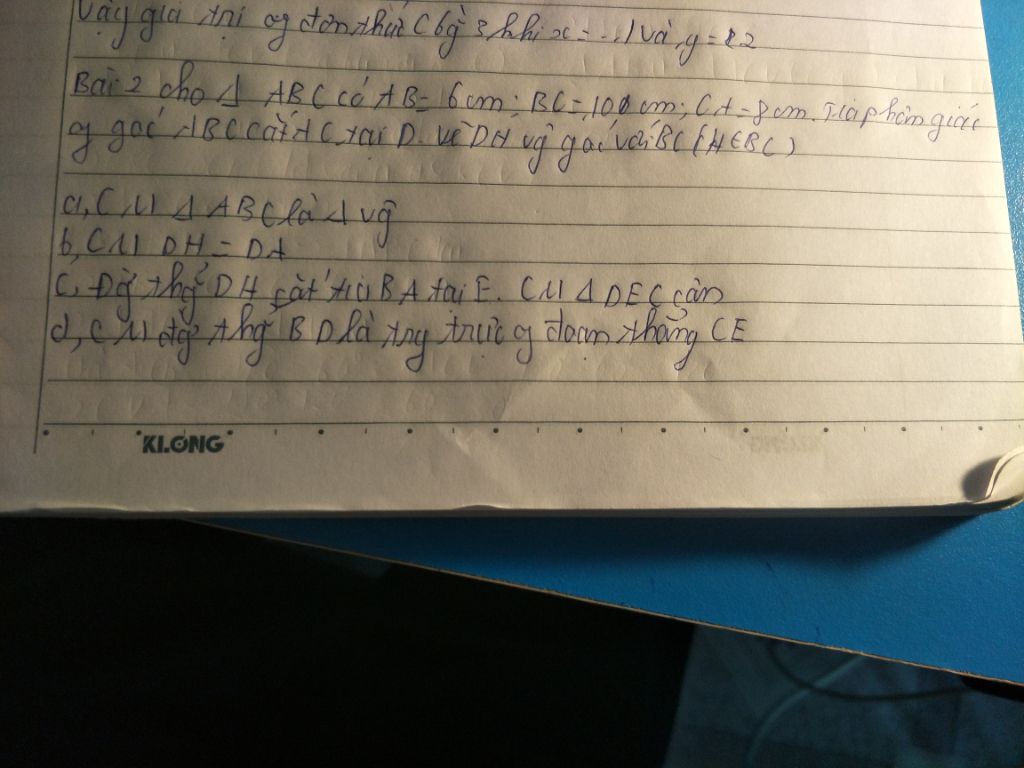 Vậy giá trị cg đơn thức C bg 3 khi x = -1 và y = 2
Bài 2 cho Δ ABC có AB = 6 cm; BC = 10 cm; CA = 8 cm. Tia phân giác
cg góc ABC cắt AC tại D. vẽ DH vg góc với BC (H∈BC)
a, CM Δ ABC là Δ vg
b, CM DH = DA
c, Đg thg DH cắt tia BA tại E. CM Δ DEC cân
d, CM đg thg BD là trg trực cg đoạn thẳng CE
KLONG